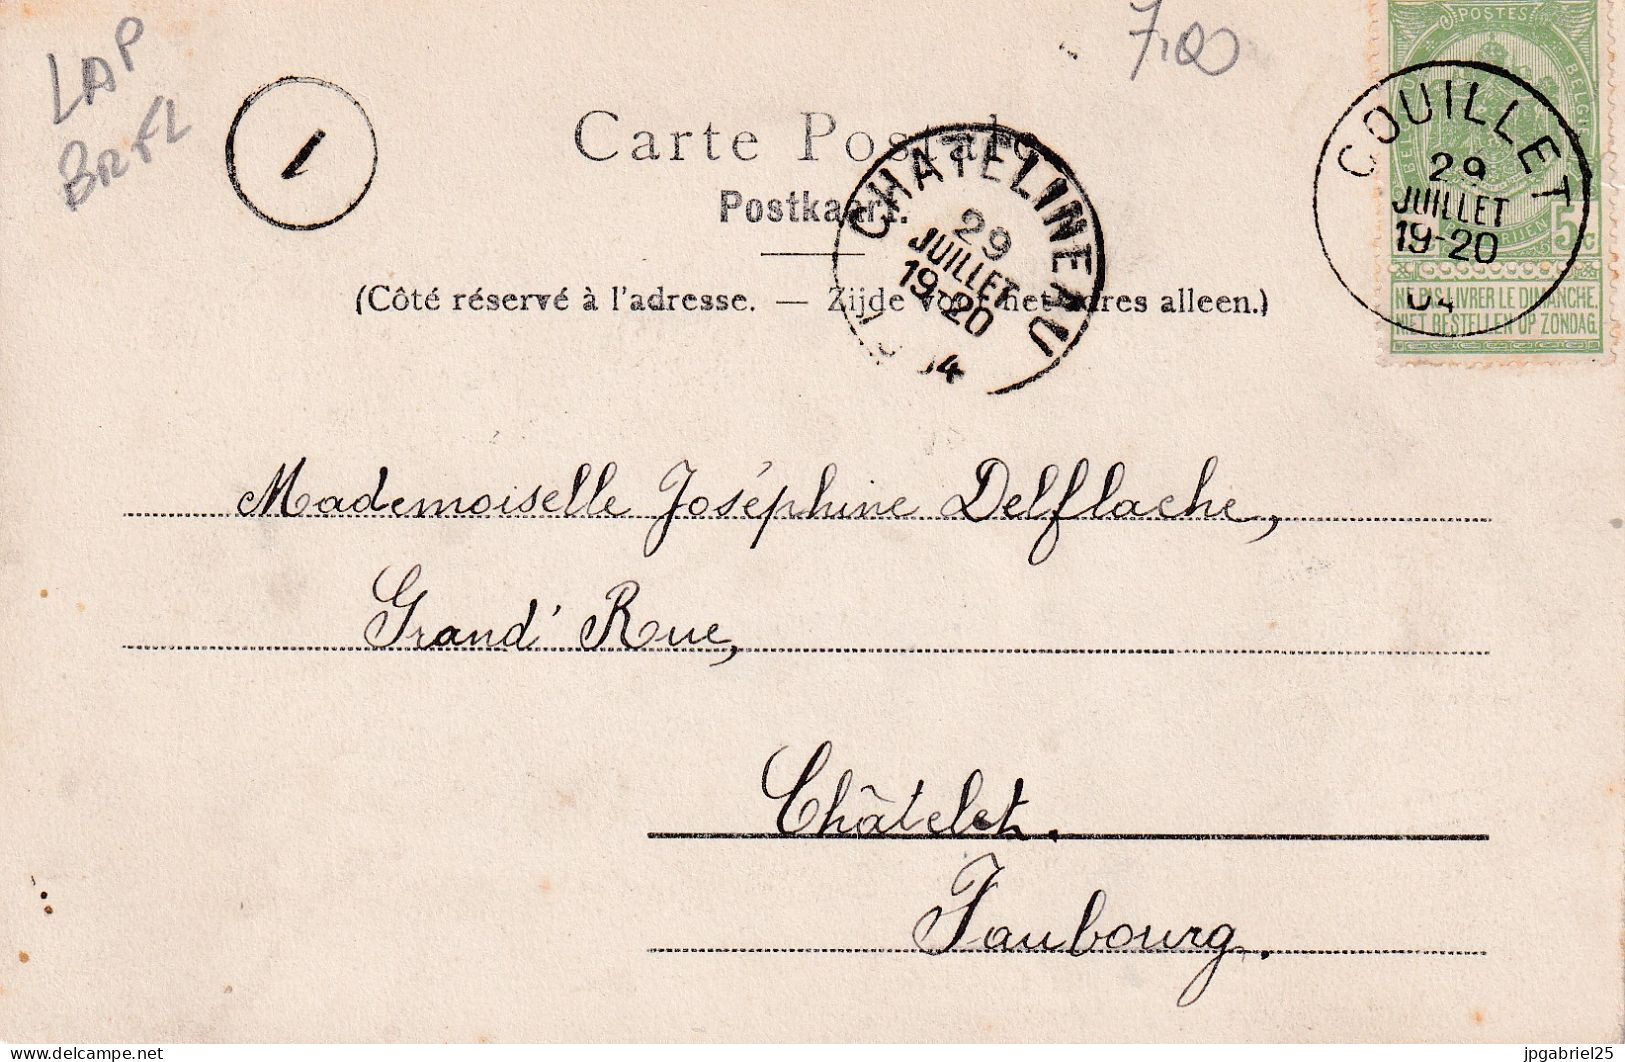 LAP
BRFL
1
7,00
Carte Postale
Postkaart.
(Côté réservé à l'adresse. — Zijde voor het adres alleen.)
CHATELINEAU
29
JUILLET
19-20
04
POSTES
COUILLET
29
JUILLET
19-20
04
5c
NE PAS LIVRER LE DIMANCHE.
NIET BESTELLEN OP ZONDAG.
Mademoiselle Joséphine Delflache,
Grand' Rue,
Châtelet.
Faubourg.
delcampe.net
jpgabriel25